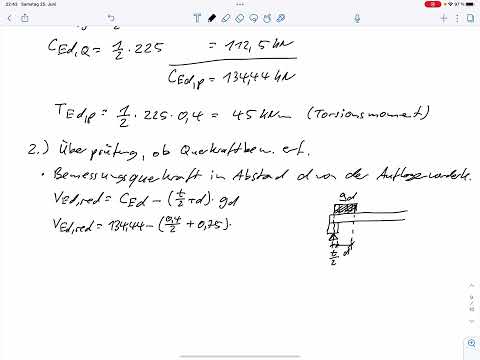 22:43 Samstag 25. Juni
97 %
C_Ed,Q = 1/2 · 225 = 112,5 kN
C_Ed,p = 134,44 kN
T_Ed,p = 1/2 · 225 · 0,4 = 45 kNm (Torsionsmoment)
2.) Überprüfung, ob Querkraftbew. erf.
• Bemessungsquerkraft im Abstand d von der Auflagervorderk.
V_Ed,red = C_Ed - (t/2 + d) · g_d
g_d
V_Ed,red = 134,44 - (0,4/2 + 0,75) ·
t/2 d
9 / 10